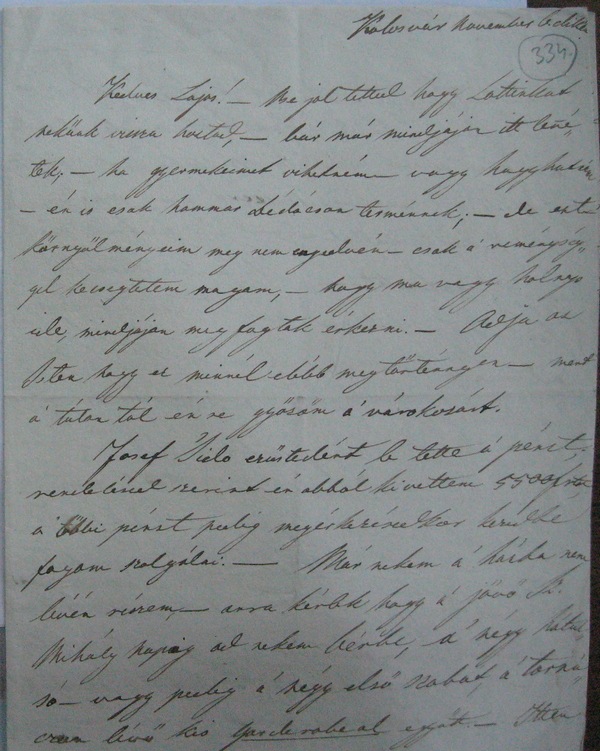 Kolosvár November
334.
Kedves Lajos! – Be jol tettül hogy Lottinkat
nekünk vissza hoztad, – bár már mindjáján itt lené-
tek; – ha gyermekeimet vihetném – vagy hagyhatnám
– én is csak hammar Dédácson termennék; – de ezt
környülményeim meg nem engedvén – csak á reménység-
gel kecsegtetem magam, – hogy ma vagy holnap
ide, mindjáján meg fogtak érkezni. – Adja az
Isten hogy ez minnél elébb megtörténnyen – mert
á tulan túl én ne győzöm á várokozást.
Josef le tette á pénzt
rendelésed szerint én abbol kivettem 5500
a többi pénzt pedig megérkezésedkor kezedbe
fogom szolgálni. – Már nekem á házba nem
lévén részem, – arra kérlek hogy á jövő Sz.
Mihály napig ad nekem bérbe, á négy hátul-
só – vagy pedig á négy első szobát, á torná-
czon lévő kis garderobeal együtt. – Itten